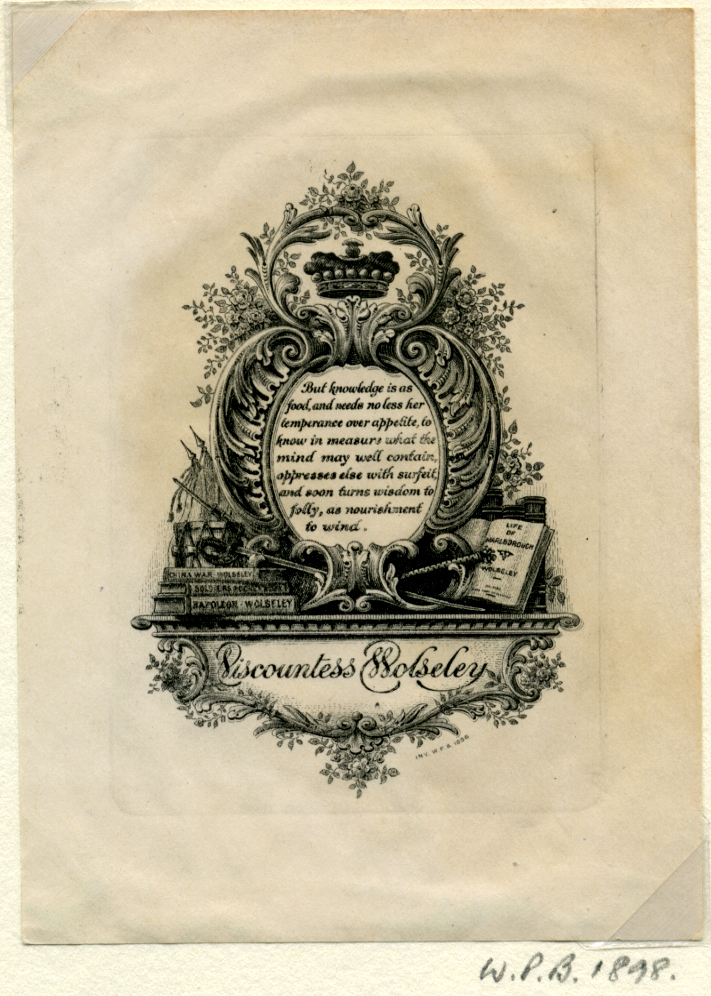 But knowledge is as
food, and needs no less her
temperance over appetite, to
know in measure what the
mind may well contain,
oppresses else with surfeit,
and soon turns wisdom to
folly, as nourishment
to wind.
LIFE
OF
MARLBOROUGH
WOLSELEY
CHINA WAR WOLSELEY
SOLDIERS POCKET BOOK
NAPOLEON · WOLSELEY
Viscountess Wolseley
INV. W.P.B. 1898
W.P.B. 1898.